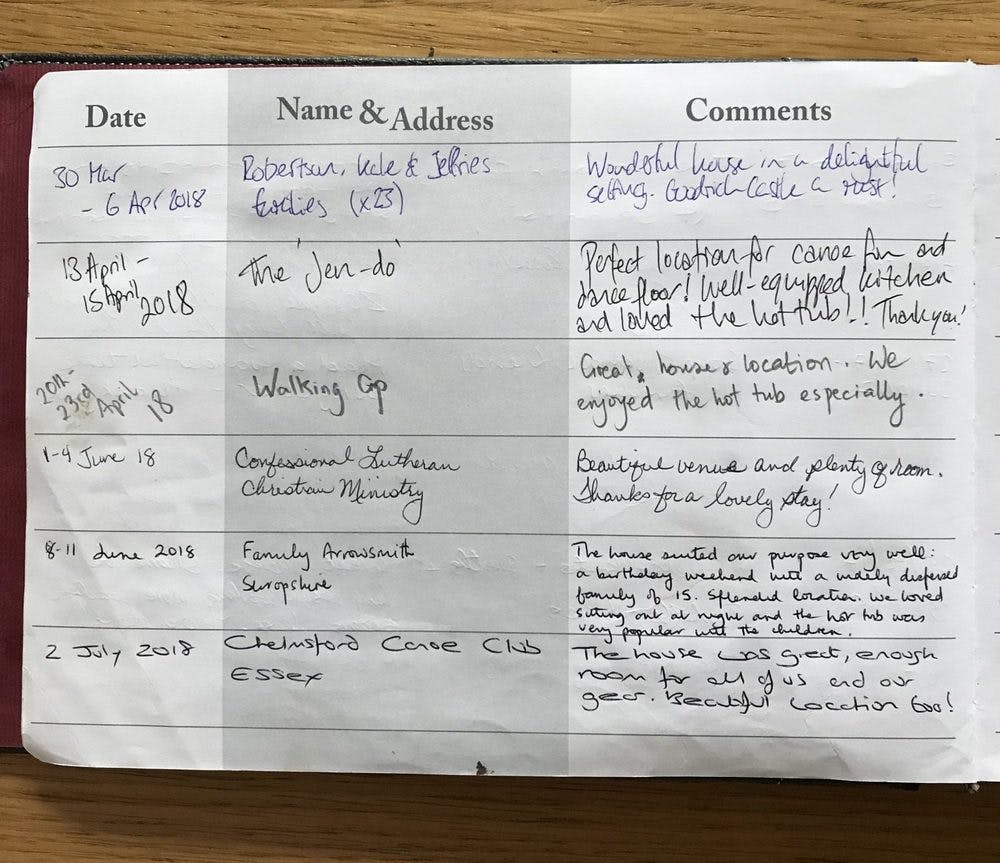 Date Name & Address Comments
30 Mar
- 6 Apr 2018
Robertson, Kale & Jefries
families (x23)
Wonderful house in a delightful
setting. Goodrich Castle a must!
13 April -
15 April 2018
the 'Jen-do'
Perfect location for canoe fun and
dance floor! Well-equipped kitchen
and loved the hot tub!! Thank you!
20th-
23rd April
18
Walking Gp
Great house & location. We
enjoyed the hot tub especially.
1-4 June 18
Confessional Lutheran
Christian Ministry
Beautiful venue and plenty of room.
Thanks for a lovely stay!
8-11 June 2018
Family Arrowsmith
Shropshire
The house suited our purpose very well:
a birthday weekend with a widely dispersed
family of 15. Splendid location. We loved
sitting out at night and the hot tub was
very popular with the children.
2 July 2018
Chelmsford Canoe Club
Essex
The house was great, enough
room for all of us and our
gear. Beautiful Location too!